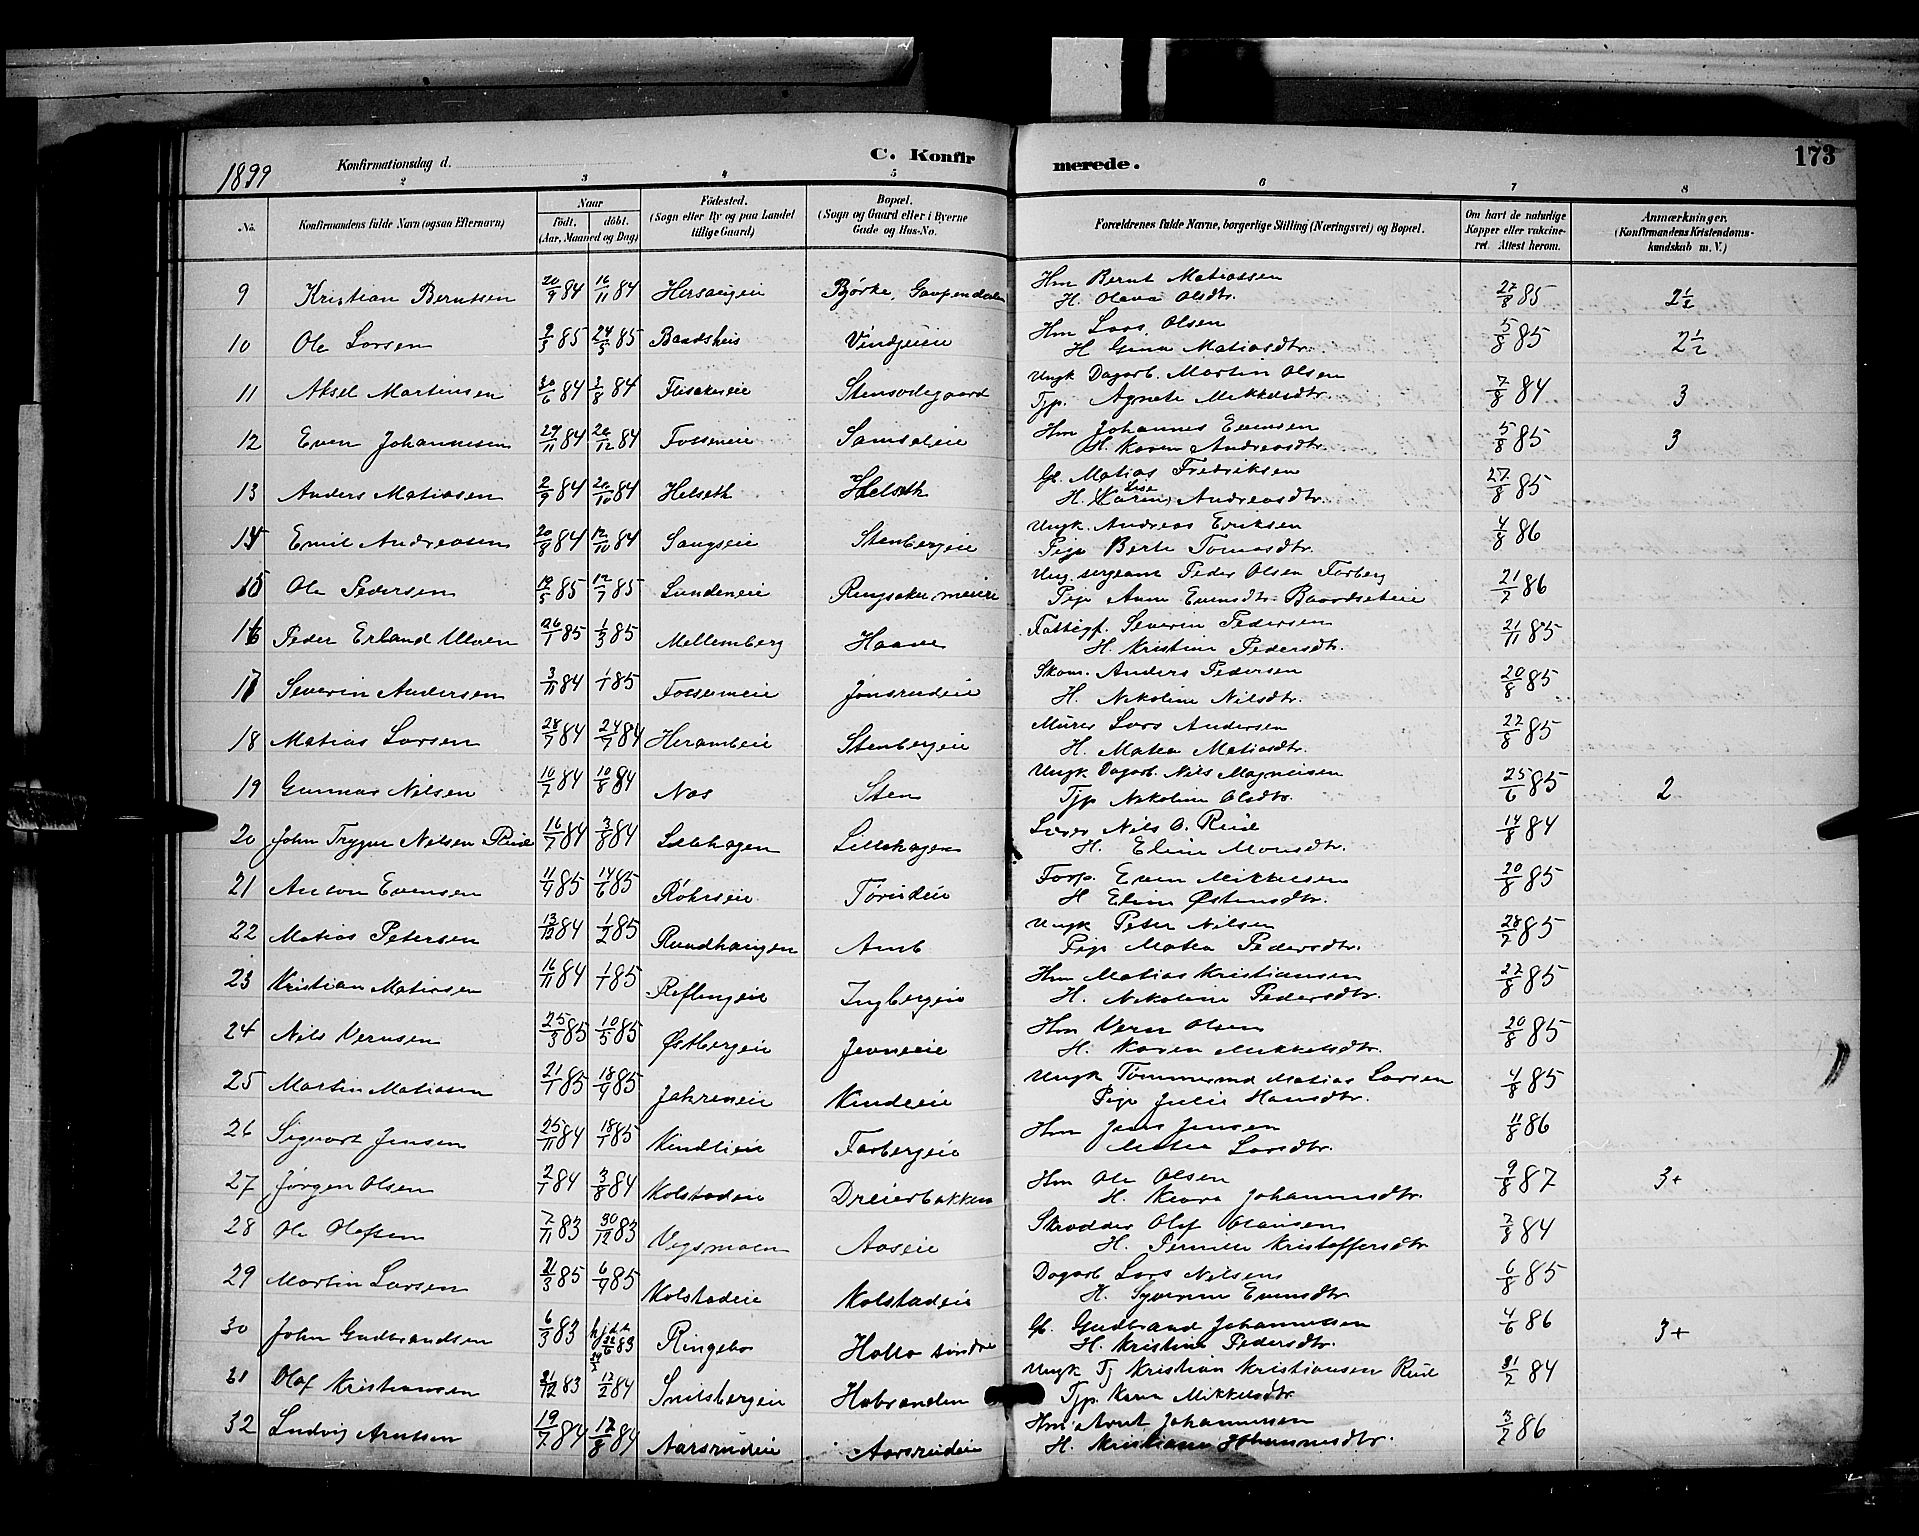 1899 Konfirmationsdag d. C. Konfir merede. 173
2 3 4 5 6 7 8
No. Konfirmandens fulde Navn (ogsaa Efternavn) Naar født. døbt. (Aar, Maaned og Dag) Fødested. (Sogn eller By og paa Landet tillige Gaard) Bopæl. (Sogn og Gaard eller i Byerne Gade og Hus-No. Forældrenes fulde Navne, borgerlige Stilling (Næringsvei) og Bopæl. Om havt de naturlige Kopper eller vakcineret. Attest herom. Anmærkninger. (Konfirmandens Kristendomskundskab m. V.)
9 Kristian Berntsen 20/9 84 16/11 84 Hersaugeie Bjørke, Gaupendalen Hm Bernt Matiassen
H. Olava Olsdtr. 27/8 85 2 1/2
10 Ole Larsen 9/3 85 24/5 85 Vindjueie Hm Lars Olsen
H Gina Matiasdtr. 5/8 85 2 1/2
11 Aksel Martinsen 30/6 84 3/8 84 Flisakereie Stensodegaard Ungk Dagarb. Martin Olsen
Tjp. Agnete Mikkelsdtr. 7/8 84 3
12 Even Johannesen 29/11 84 26/12 84 Fosseneie Samsaleie Hm Johannes Evensen
H. Karen Andreasdtr. 5/8 85 3
13 Anders Matiasen 2/9 84 20/10 84 Helseth Helseth Gb. Matias Fredriksen
H. Karen Lise Andreasdtr. 27/8 85
14 Emil Andreasen 20/8 84 12/10 84 Saugseie Stenbergeie Ungk. Andreas Eriksen
Pige Berte Tomasdtr. 4/8 86
15 Ole Pedersen 19/5 85 12/7 85 Lundeneie Ringsaker meieri Ung. sergeant Peder Olsen Farberg
Pige Anne Evensdtr. Baardseteie 21/7 86
16 Peder Erland Ulven 26/1 85 1/3 85 Mellemberg Haave Fattigf. Severin Pedersen
H. Kristine Pedersdtr. 21/11 85
17 Severin Andersen 3/11 84 1/1 85 Fosseneie Jønsrudeie Skom. Anders Pedersen
H. Nikoline Nilsdtr. 20/8 85
18 Matias Larsen 28/7 84 24/7 84 Herambeie Stenbergeie Murer Lars Andersen
H. Matea Matiasdtr. 22/8 85
19 Gunnar Nilsen 10/7 84 10/8 84 Nas Sten Ungk Dagarb. Nils Magnusen
Tjp Nikoline Olsdtr. 25/6 85 2
20 John Trygve Nilsen Rud 16/7 84 3/8 84 Lillehagen Lillehagen Lærer Nils O. Rud
H. Eline Monsdtr. 14/8 84
21 Anton Evensen 11/4 85 14/6 85 Røhrseie Tørudeie Forp. Even Mikkelsen
H Eline Østensdtr. 20/8 85
22 Matias Petersen 13/12 84 1/2 85 Rundhaugen Amb Ungk Peter Nilsen
Pige Matea Pedersdtr. 28/7 85
23 Kristian Matiasen 16/11 84 1/1 85 Reflingeie Ingbergeie Hm Matias Kristiansen
H. Nikoline Pedersdtr. 22/8 85
24 Nils Vernsen 25/3 85 10/5 85 Østbergeie Jevneeie Hm Vern Olsen
H. Karen Mikkelsdtr. 20/8 85
25 Martin Matiasen 21/1 85 18/4 85 Jahreneie Kindeie Ungk Tømmermd Matias Larsen
Pige Julie Hansdtr. 4/8 85
26 Sigvart Jensen 25/11 84 18/1 85 Kindlieie Farbergeie Hm Jens Jensen
Matea Larsdtr. 11/8 86
27 Jørgen Olsen 2/7 84 3/8 84 Kolstadeie Dreierbakken Hm Ole Olsen
H. Kevra Johannesdtr. 9/8 87 3+
28 Ole Olafsen 7/11 83 30/12 83 Vegsmoen Aaseie Skrædder Olaf Olausen
H. Pernille Kristoffersdtr 7/8 84
29 Martin Larsen 21/3 85 6/4 85 Kolstadeie Kolstadeie Dagarb Lars Nilsen
H. Syverine Evensdtr 6/8 85
30 John Gudbrandsen 6/3 83 Ringebo Holto søndre Gb. Gudbrand Johannesen
H. Kristine Pedersdtr. 4/6 86 3+
31 Olaf Kristiansen 21/12 83 17/2 84 Snilsbergeie Habranden Ungk Tj Kristian Kristiansen Rud
Tjp Karen Mikkelsdtr. 31/7 84
32 Ludvig Arntsen 19/7 84 17/8 84 Aarsrudeie Aarsrudeie Hm Arnt Johannesen
H. Kristiane Johannesdtr. 3/7 86